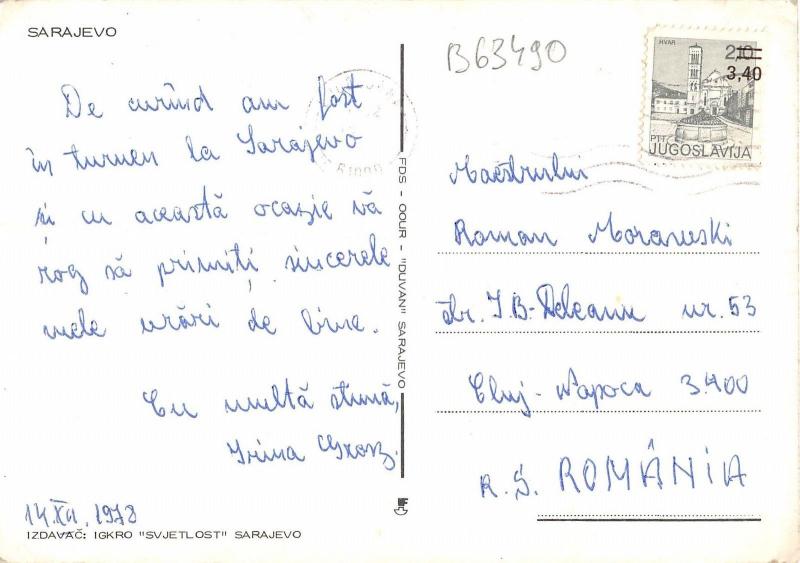 SARAJEVO
B63490
HVAR
2,10
3,40
PTT
JUGOSLAVIJA
De curînd am fost
în turneu la Sarajevo
și cu această ocazie vă
rog să primiți sincerele
mele urări de bine.
Cu multă stimă,
Irina
14.XII.1978
IZDAVAČ: IGKRO "SVJETLOST" SARAJEVO
FDS - OOUR - "DUVAN" SARAJEVO
Maestrului
Roman Morawski
str. I.B. Deleanu nr. 53
Cluj-Napoca 3.400
R.S. ROMÂNIA